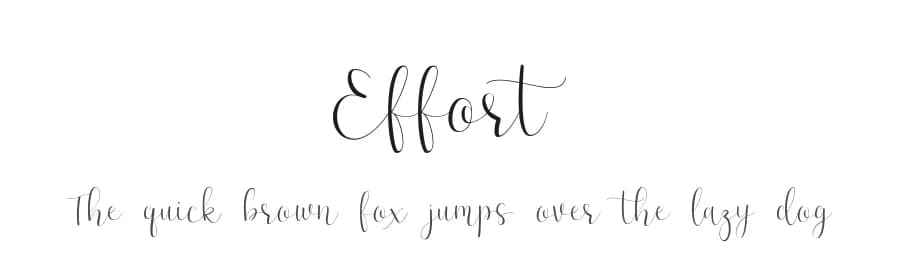 Effort
The quick brown fox jumps over the lazy dog